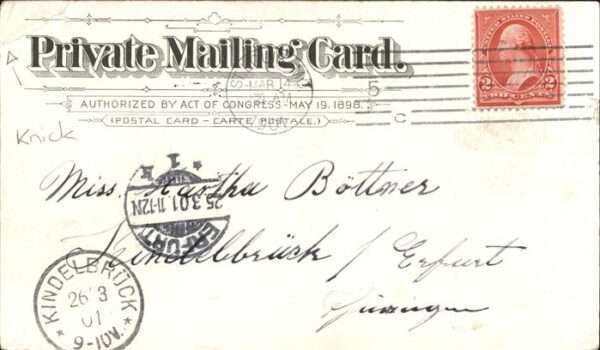 Private Mailing Card.
AUTHORIZED BY ACT OF CONGRESS-MAY 19. 1898.
(POSTAL CARD – CARTE POSTALE.)
Knick
MAR 14
5
C
2 2
TWO CENTS
Miss Martha Böttner
ERFURT
25.3.01.11-12N
* 1 k
Kindelbrück / Erfurt
KINDELBRÜCK
26 3
01
9-10V.